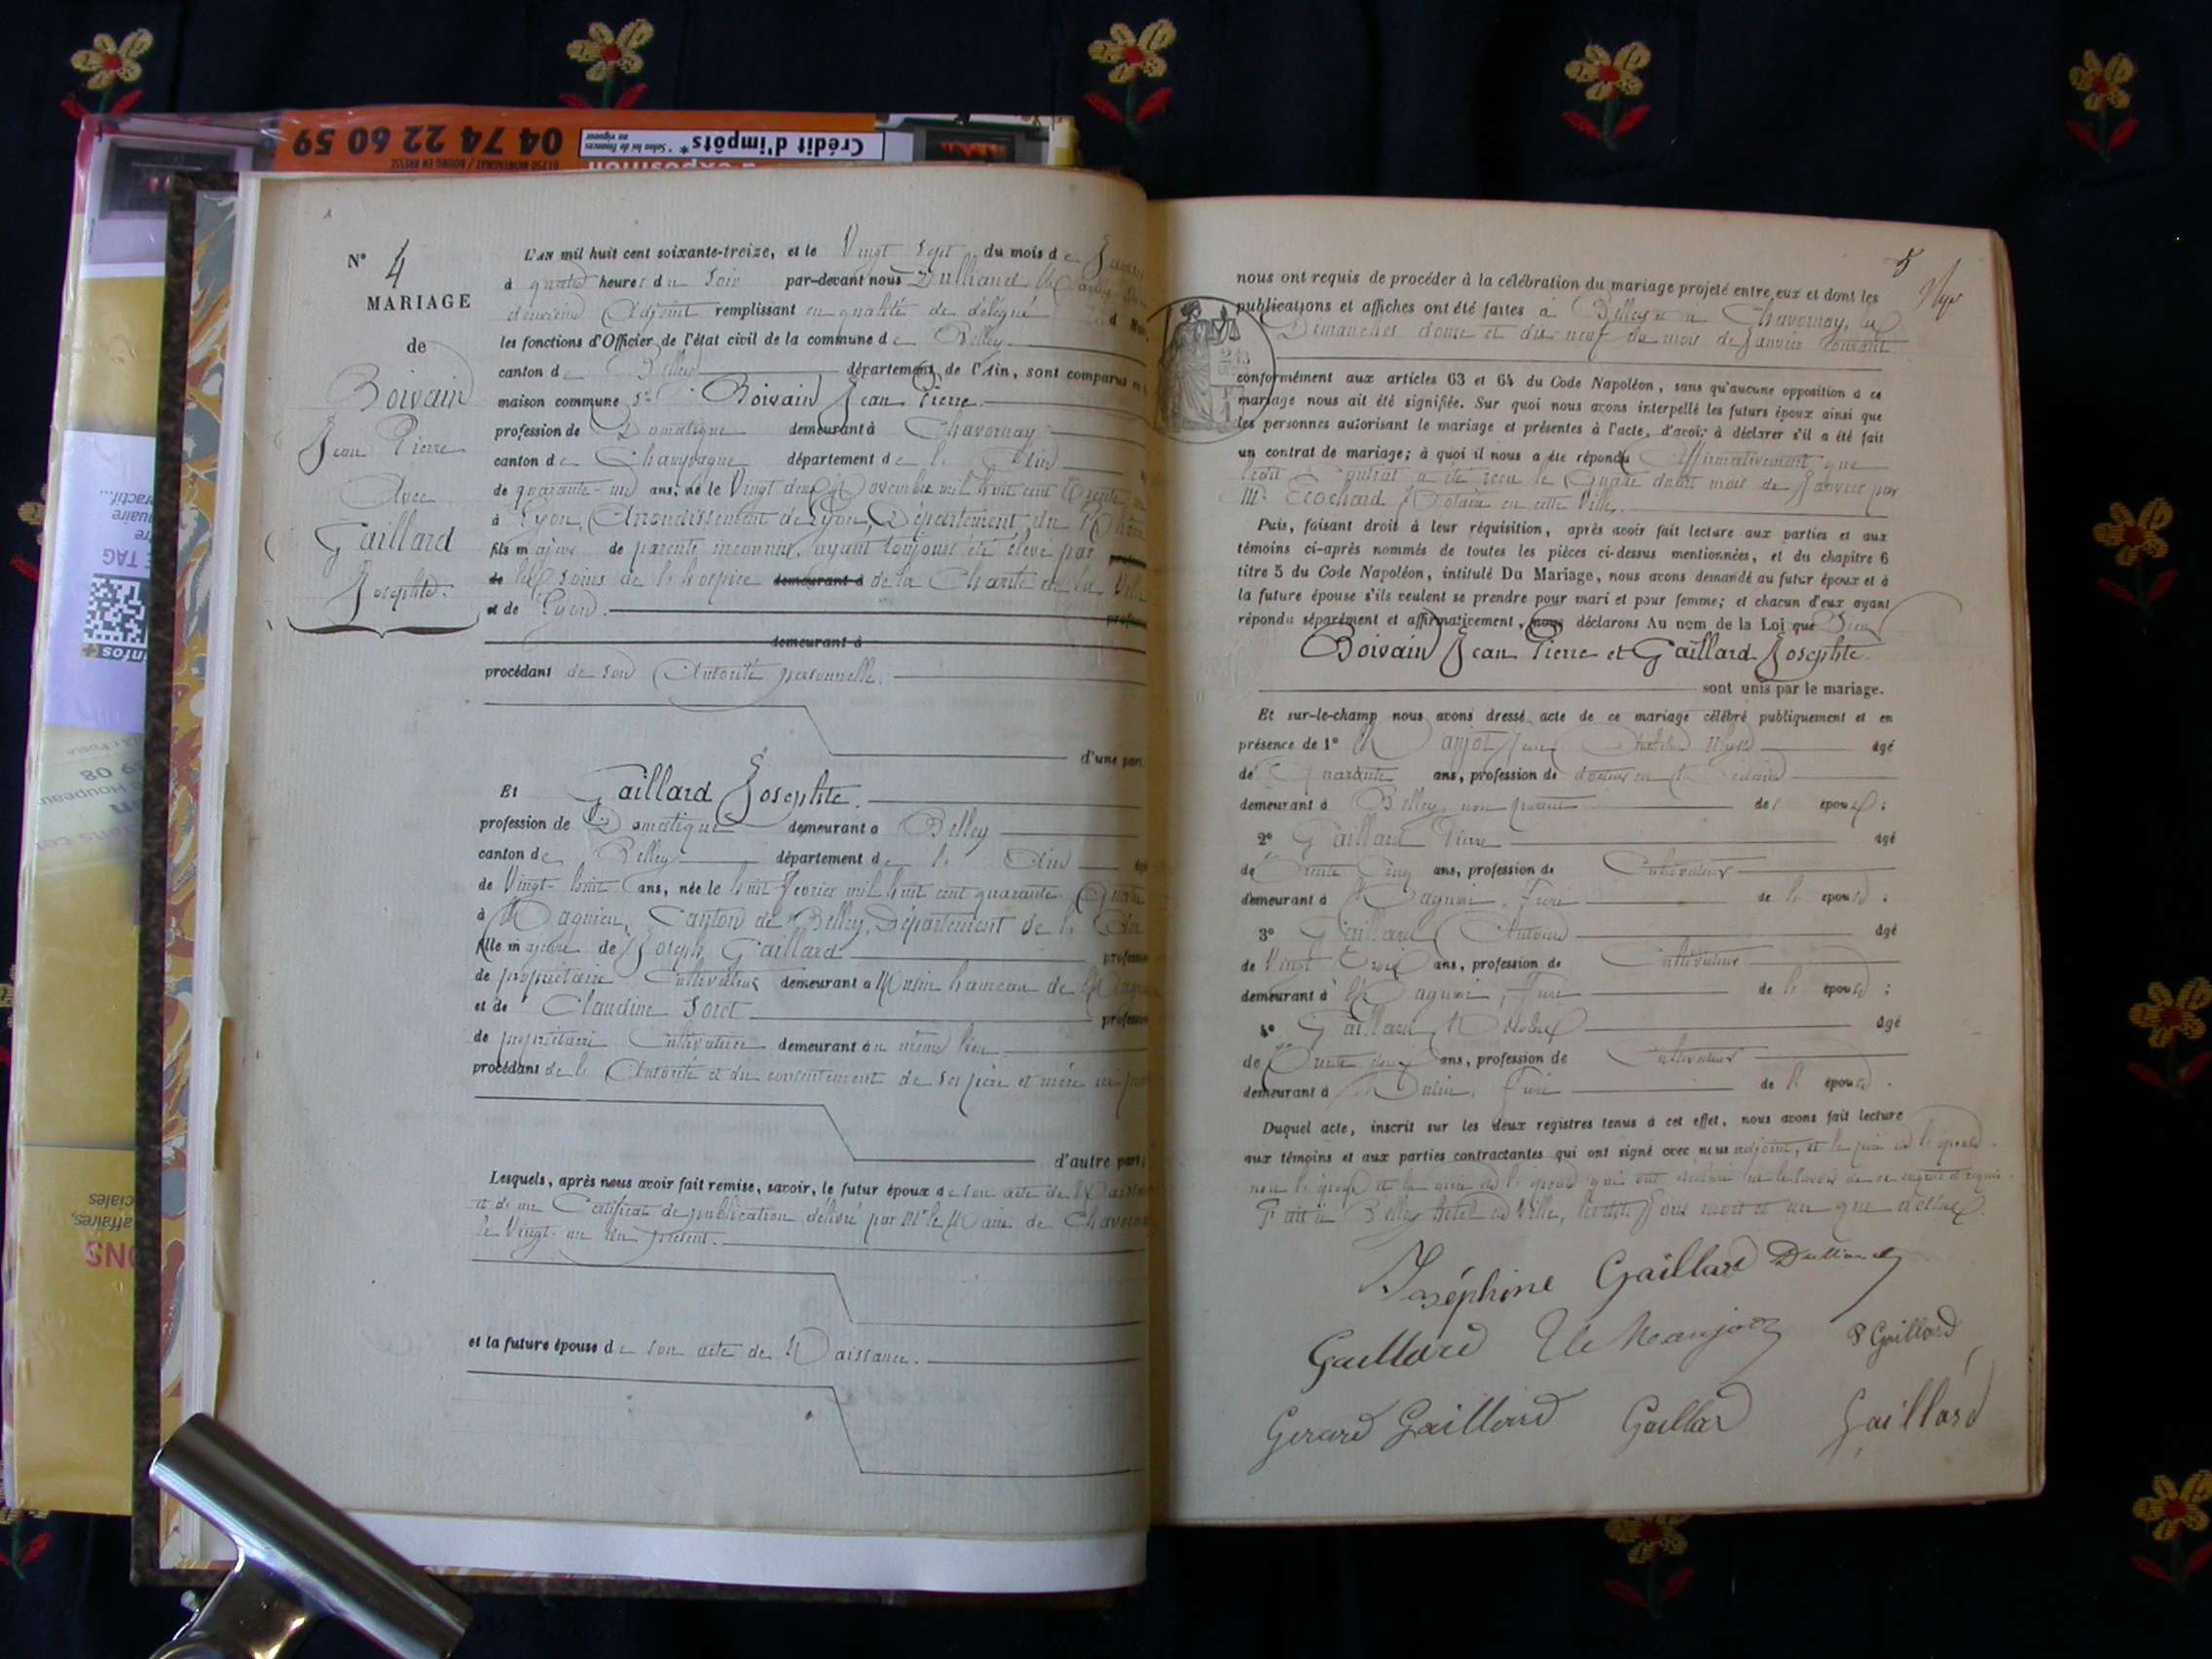 04 74 22 60 59
01250 MONTAGNAT / BOURG EN BRESSE
Crédit d'impôts*
* Selon loi de finances
en vigueur
N° 4
MARIAGE
de
Boivain
Jean Pierre
Avec
Gaillard
Josephte.
L'AN mil huit cent soixante-treize, et le Vingt Sept du mois de Janvier
à quatre heures du Soir par-devant nous Dulliand
deuxième Adjoint remplissant en qualité de délégué
les fonctions d'Officier de l'état civil de la commune de Belley
canton de Belley département de l'Ain, sont comparus en
maison commune Sr Boivain Jean Pierre.
profession de Domestique demeurant à Chavornay
canton de Champagne département de l'Ain
de quarante-un ans, né le Vingt deux Novembre mil huit cent Trente
à Lyon, Arrondissement de Lyon, Département du Rhône
fils majeur de parents inconnus, ayant toujours été élevé par
les soins de l'hospice demeurant à de la Charité de la Ville
et de Lyon.
demeurant à
procédant de son Autorité personnelle.
d'une part.
Et Gaillard Josephte.
profession de Domestique demeurant à Belley
canton de Belley département de l'Ain
de Vingt-huit ans, née le huit Fevrier mil huit cent quarante Quatre
à Magnieu, Canton de Belley, Département de l'Ain
fille majeure de Joseph Gaillard
de propriétaire Cultivateur demeurant à Musin hameau de Magnieu
et de Claudine Soret
de propriétaire Cultivatrice demeurant au même lieu
procédant de l'Autorité et du consentement de ses père et mère ici
d'autre part.
Lesquels, après nous avoir fait remise, savoir, le futur époux de son acte de Naissance
et d'un Certificat de publication délivré par Mr le Maire de Chavornay
le Vingt-un du présent.
et la future épouse de son acte de Naissance.
5
nous ont requis de procéder à la célébration du mariage projeté entre eux et dont les
publications et affiches ont été faites à Belley et à Chavornay, les
Dimanches douze et dix neuf du mois de Janvier Courant
conformément aux articles 63 et 64 du Code Napoléon, sans qu'aucune opposition à ce
mariage nous ait été signifiée. Sur quoi nous avons interpellé les futurs époux ainsi que
les personnes autorisant le mariage et présentes à l'acte, d'avoir à déclarer s'il a été fait
un contrat de mariage; à quoi il nous a été répondu Affirmativement que
ledit Contrat a été reçu le Quatre dudit mois de Janvier par
Me Ecochard Notaire en cette Ville.
Puis, faisant droit à leur réquisition, après avoir fait lecture aux parties et aux
témoins ci-après nommés de toutes les pièces ci-dessus mentionnées, et du chapitre 6
titre 5 du Code Napoléon, intitulé Du Mariage, nous avons demandé au futur époux et à
la future épouse s'ils veulent se prendre pour mari et pour femme; et chacun d'eux ayant
répondu séparément et affirmativement, nous déclarons Au nom de la Loi que
Boivain Jean Pierre et Gaillard Josephte.
sont unis par le mariage.
Et sur-le-champ nous avons dressé acte de ce mariage célébré publiquement et en
présence de 1° âgé
de Quarante ans, profession de docteur en Médecine
demeurant à Belley, non parent des époux;
2° Gaillard Pierre âgé
de Trente Cinq ans, profession de Cultivateur
demeurant à Magnieu, Frère de l'épouse;
3° Gaillard Antoine âgé
de Vingt Trois ans, profession de Cultivateur
demeurant à Magnieu, Frère de l'épouse;
4° Gaillard âgé
de Trente deux ans, profession de Cultivateur
demeurant à Musin, Frère de l'épouse.
Duquel acte, inscrit sur les deux registres tenus à cet effet, nous avons fait lecture
aux témoins et aux parties contractantes qui ont signé avec nous adjoint, et le père de l'épouse
non l'époux et la mère de l'épouse qui ont déclaré ne le savoir de ce enquis et requis.
Fait à Belley hôtel de Ville, lesdits jour mois et an que dessus.
Joséphine Gaillard Dulliand
Gaillard P Gaillard
Gerard Gaillard Gaillar Gaillard